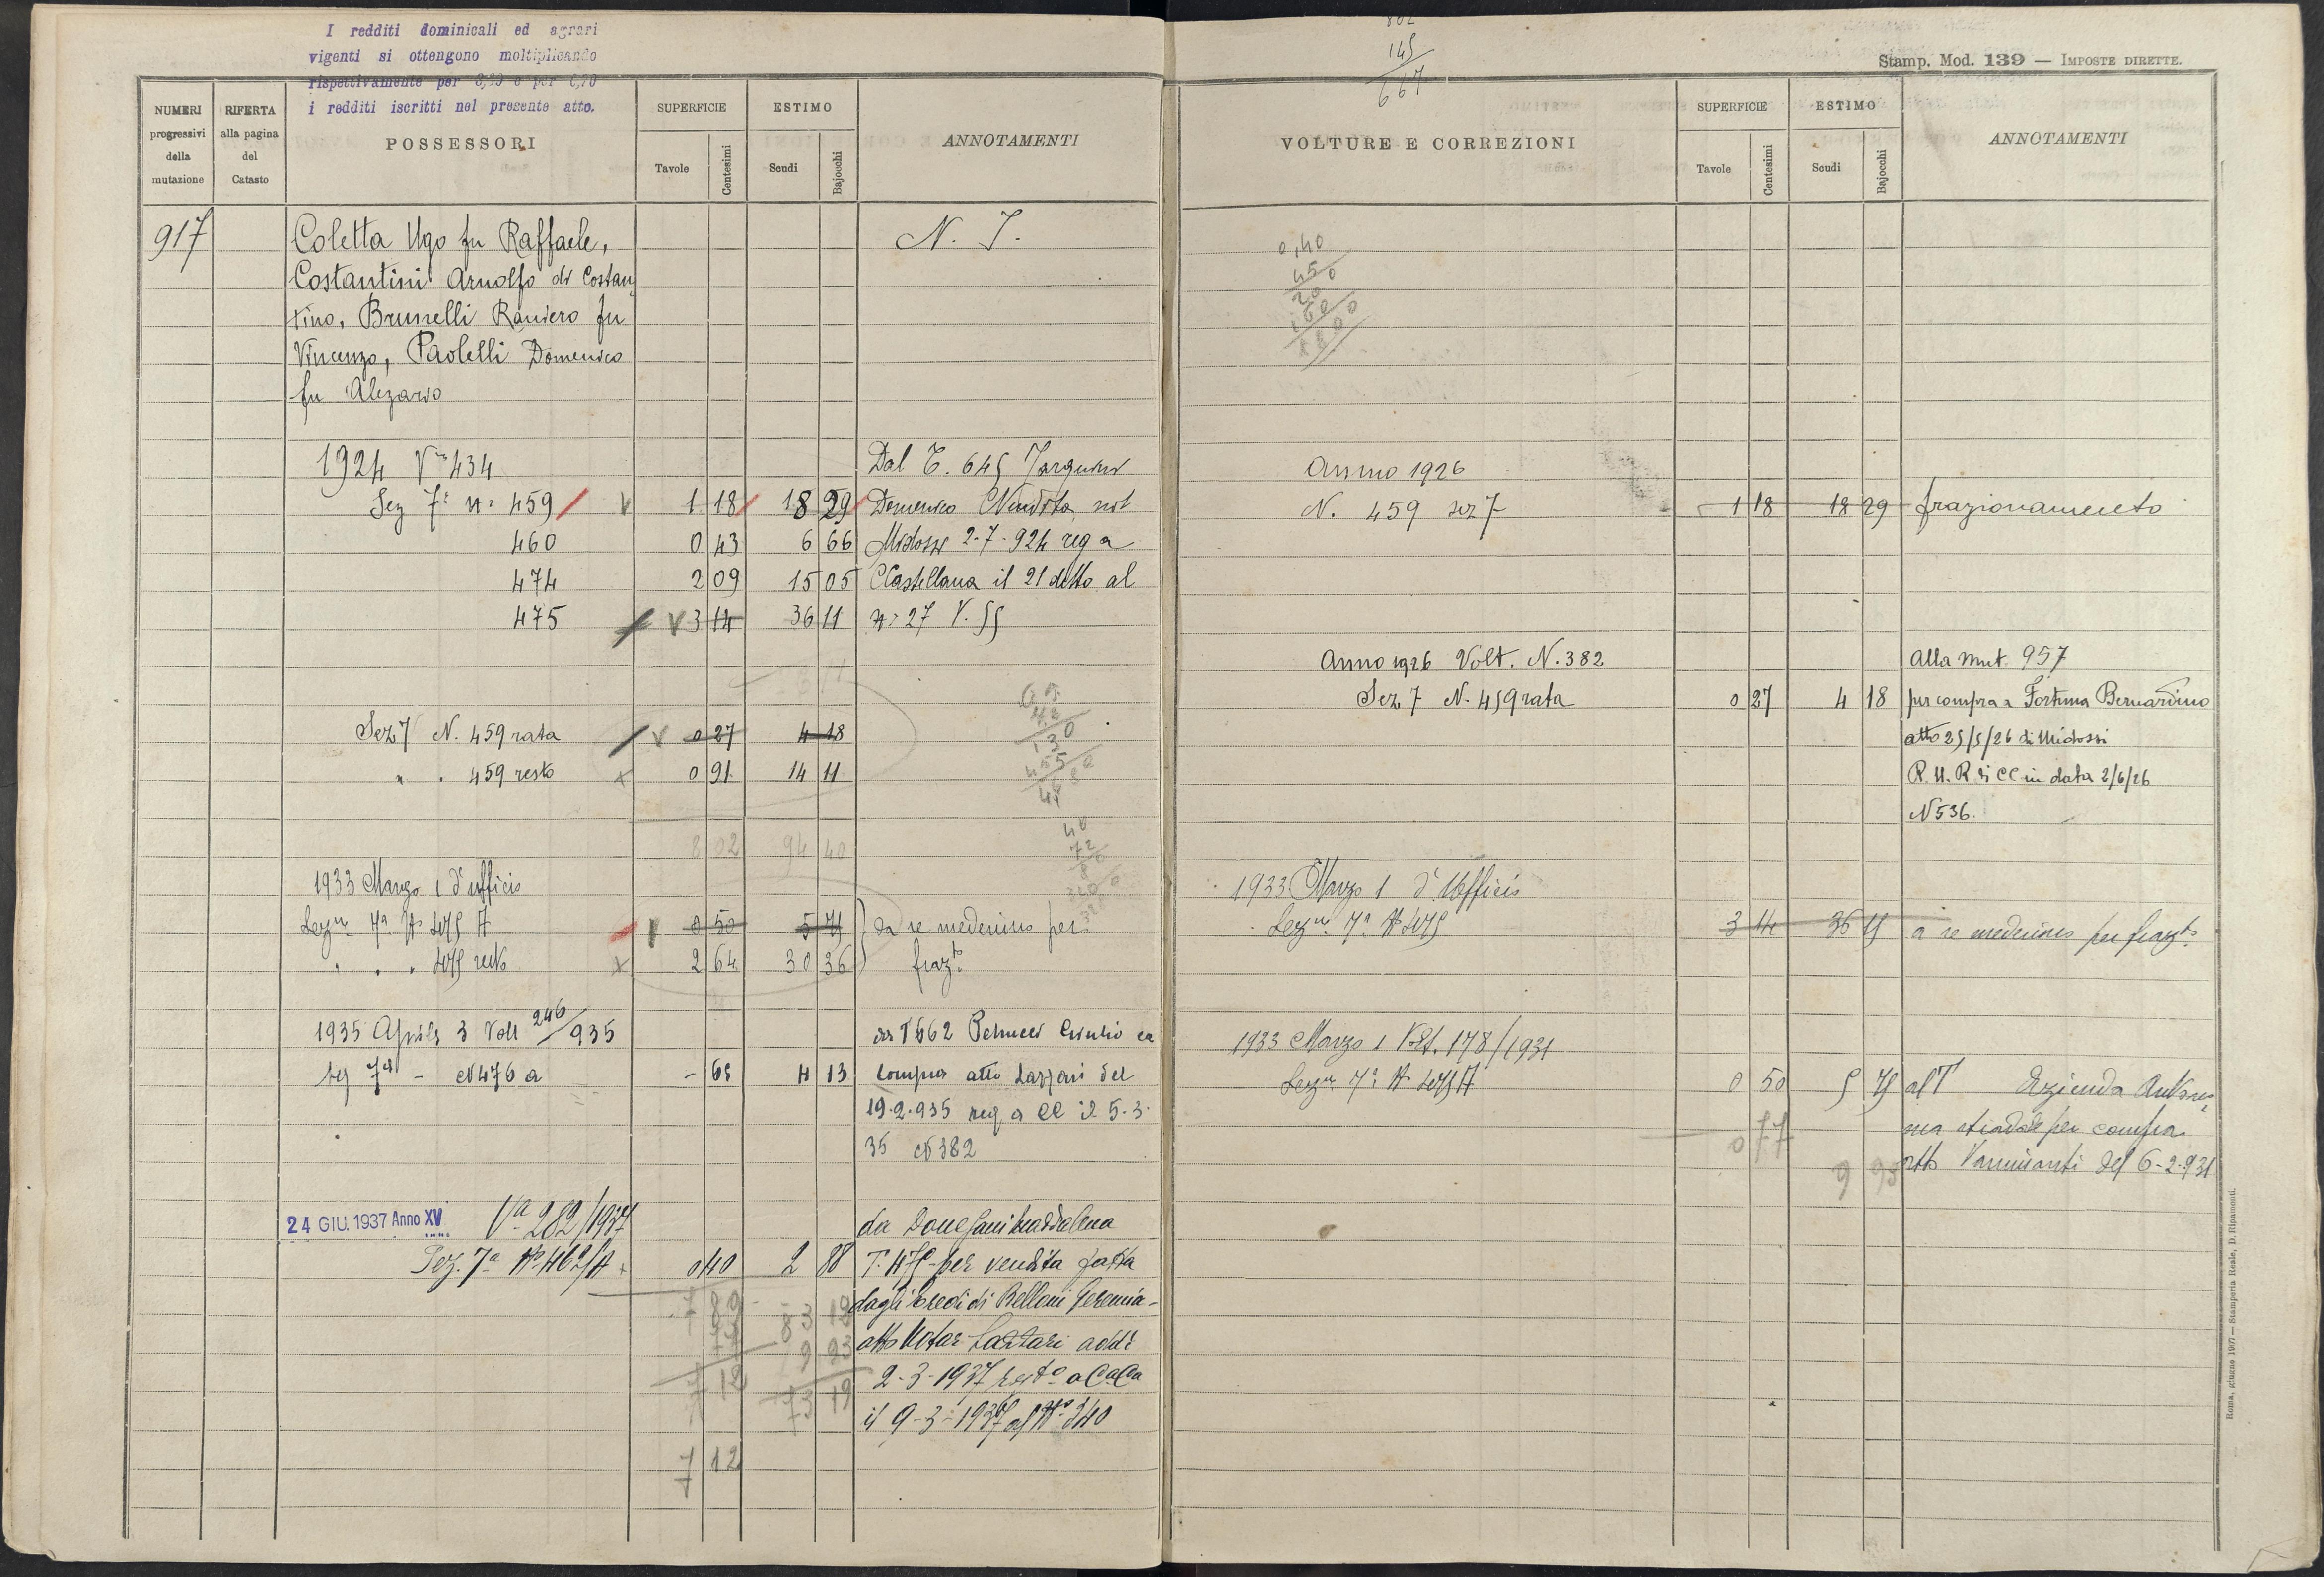 I redditi dominicali ed agrari
vigenti si ottengono moltiplicando
rispettivamente per e per
i redditi iscritti nel presente atto.
NUMERI progressivi della mutazione
RIFERTA alla pagina del Catasto
POSSESSORI
SUPERFICIE
Tavole
Centesimi
ESTIMO
Scudi
Bajocchi
ANNOTAMENTI
917
Coletta Ugo fu Raffaele,
N. I.
Costantini Arnolfo di Costan
tino, Brunelli Raniero fu
Vincenzo, Paolelli Domenico
fu
1924 V 434
Dal T. 645
Sez 7ª n. 459 1 18 18 29 Domenico Vendita not
460 0 43 6 66 Midossi 2-7-924 reg a
474 2 09 15 05 CCastellana il 21 detto al
475 3 14 36 11 n. 27 V. 55
Sez 7 N. 459 rata 0 27 4 18
" . 459 resto 0 91 14 11
8 02 94 40
1933 Marzo 1 d'ufficio
Sezne 7ª N. 475 A 0 50 5 75 da se medesimo per
" . . 475 resto 2 64 30 36 frazto
1935 Aprile 3 Volt 246/935
Petrucci Giulio
sez 7ª - N 476 a - 65 4 13 compra atto Lazzari del
19.2.935 reg a CC il 5.3.
35 N 382
24 GIU. 1937 Anno XV Va 282/1937
da Maddalena
Sez. 7ª No 462/A 0 40 2 88 per vendita fatta
dagli eredi di Belloni Geremia -
7 89 83 12
77 9 93
atto Notar Lazzari addì
7 12 73 19
2-3-1937
il 9-3-1937 al No 340
7 12
802
145
667
Stamp. Mod. 139 — IMPOSTE DIRETTE.
VOLTURE E CORREZIONI
SUPERFICIE
Tavole
Centesimi
ESTIMO
Scudi
Bajocchi
ANNOTAMENTI
Anno 1926
N. 459 sez 7 1 18 18 29 frazionamento
Anno 1926 Volt. N. 382
Alla mut. 957
Sez 7 N. 459 rata 0 27 4 18 per compra a Fortuna Bernardino
atto 25/5/26 di Midossi
R. U. R di CC in data 2/6/26
N 536.
1933 Marzo 1 d'Ufficio
Sezne 7ª N 475 3 14 36 11 a se medesimo per frazto
1933 Marzo 1 Volt. 178/1931
Sezne 7ª N. 475 A 0 50 5 75 al T Azienda Autono
ma stradale per compra
0 77
atto del 6-2-931
9 93
Roma, giugno 1907 — Stamperia Reale, D. Ripamonti.